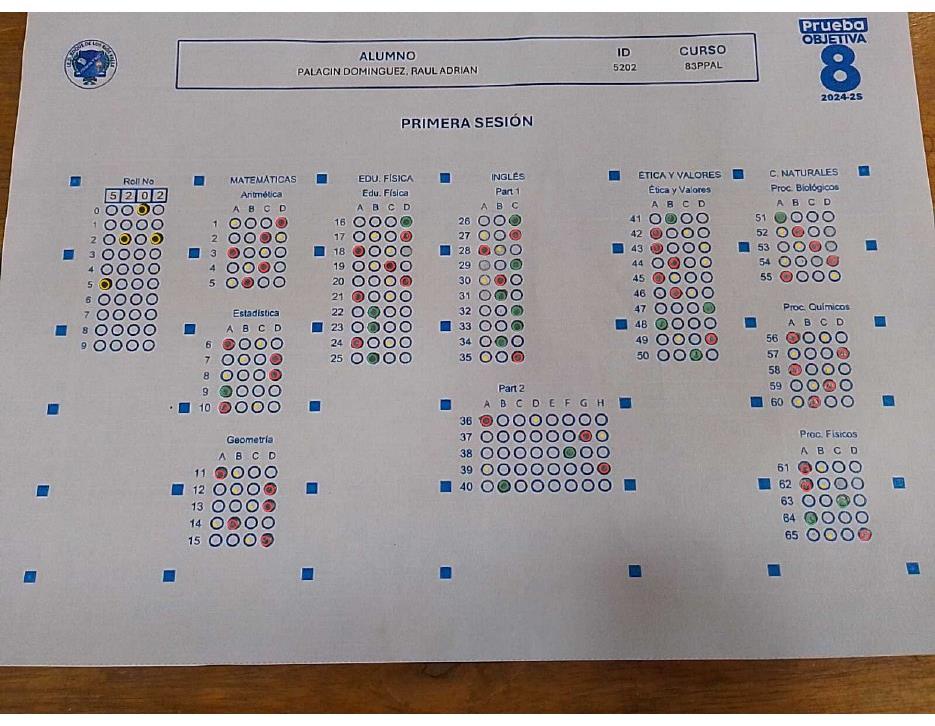 Prueba
OBJETIVA
8
2024-25
ALUMNO ID CURSO
PALACIN DOMINGUEZ, RAUL ADRIAN 5202 83PPAL
PRIMERA SESIÓN
Roll No
5 2 0 2
0
1
2
3
4
5
6
7
8
9
MATEMÁTICAS
Aritmética
A B C D
1
2
3
4
5
Estadística
A B C D
6
7
8
9
10
Geometría
A B C D
11
12
13
14
15
EDU. FÍSICA
Edu. Física
A B C D
16
17
18
19
20
21
22
23
24
25
INGLÉS
Part 1
A B C
26
27
28
29
30
31
32
33
34
35
Part 2
A B C D E F G H
36
37
38
39
40
ÉTICA Y VALORES
Ética y Valores
A B C D
41
42
43
44
45
46
47
48
49
50
C. NATURALES
Proc. Biológicos
A B C D
51
52
53
54
55
Proc. Químicos
A B C D
56
57
58
59
60
Proc. Físicos
A B C D
61
62
63
64
65